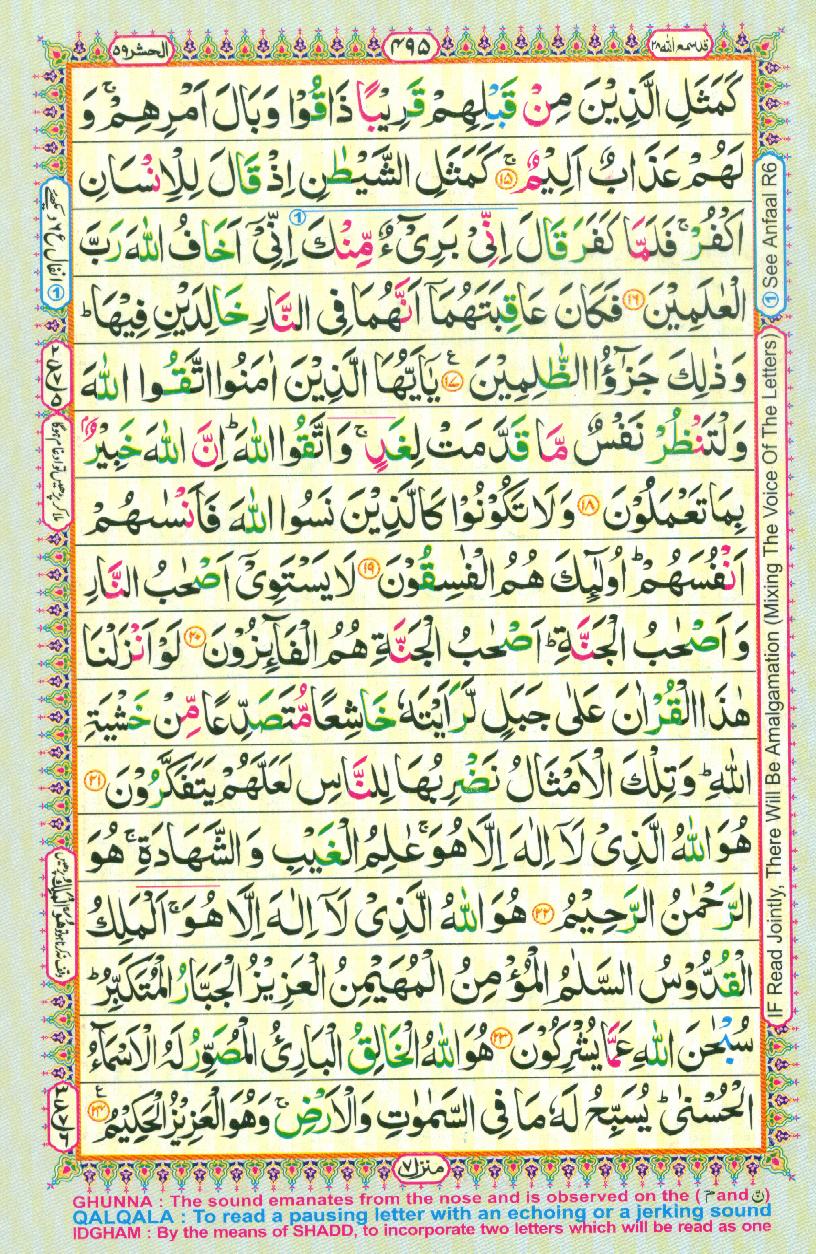 قد سمع الله ٢٨
٤٩٥
الحشر ٥٩
كَمَثَلِ الَّذِیْنَ مِنْ قَبْلِهِمْ قَرِیْبًا ذَاقُوْا وَبَالَ اَمْرِهِمْ ۚ وَ
لَهُمْ عَذَابٌ اَلِیْمٌ ۚ ﴿۱۵﴾ كَمَثَلِ الشَّیْطٰنِ اِذْ قَالَ لِلْاِنْسَانِ
اكْفُرْ ۚ فَلَمَّا كَفَرَ قَالَ اِنِّیْ بَرِیْٓءٌ مِّنْكَ اِنِّیْۤ اَخَافُ اللّٰهَ رَبَّ
الْعٰلَمِیْنَ ﴿۱۶﴾ فَكَانَ عَاقِبَتَهُمَاۤ اَنَّهُمَا فِی النَّارِ خَالِدَیْنِ فِیْهَا ؕ
وَ ذٰلِكَ جَزٰٓؤُا الظّٰلِمِیْنَ ﴿۱۷﴾ ع یٰۤاَیُّهَا الَّذِیْنَ اٰمَنُوا اتَّقُوا اللّٰهَ
وَلْتَنْظُرْ نَفْسٌ مَّا قَدَّمَتْ لِغَدٍ ۚ وَ اتَّقُوا اللّٰهَ ؕ اِنَّ اللّٰهَ خَبِیْرٌۢ
بِمَا تَعْمَلُوْنَ ﴿۱۸﴾ وَ لَا تَكُوْنُوْا كَالَّذِیْنَ نَسُوا اللّٰهَ فَاَنْسٰىهُمْ
اَنْفُسَهُمْ ؕ اُولٰٓىِٕكَ هُمُ الْفٰسِقُوْنَ ﴿۱۹﴾ لَا یَسْتَوِیْۤ اَصْحٰبُ النَّارِ
وَ اَصْحٰبُ الْجَنَّةِ ؕ اَصْحٰبُ الْجَنَّةِ هُمُ الْفَآىِٕزُوْنَ ﴿۲۰﴾ لَوْ اَنْزَلْنَا
هٰذَا الْقُرْاٰنَ عَلٰی جَبَلٍ لَّرَاَیْتَهٗ خَاشِعًا مُّتَصَدِّعًا مِّنْ خَشْیَةِ
اللّٰهِ ؕ وَ تِلْكَ الْاَمْثَالُ نَضْرِبُهَا لِلنَّاسِ لَعَلَّهُمْ یَتَفَكَّرُوْنَ ﴿۲۱﴾
هُوَ اللّٰهُ الَّذِیْ لَاۤ اِلٰهَ اِلَّا هُوَ ۚ عٰلِمُ الْغَیْبِ وَ الشَّهَادَةِ ۚ هُوَ
الرَّحْمٰنُ الرَّحِیْمُ ﴿۲۲﴾ هُوَ اللّٰهُ الَّذِیْ لَاۤ اِلٰهَ اِلَّا هُوَ ۚ اَلْمَلِكُ
الْقُدُّوْسُ السَّلٰمُ الْمُؤْمِنُ الْمُهَیْمِنُ الْعَزِیْزُ الْجَبَّارُ الْمُتَكَبِّرُ ؕ
سُبْحٰنَ اللّٰهِ عَمَّا یُشْرِكُوْنَ ﴿۲۳﴾ هُوَ اللّٰهُ الْخَالِقُ الْبَارِئُ الْمُصَوِّرُ لَهُ الْاَسْمَآءُ
الْحُسْنٰی ؕ یُسَبِّحُ لَهٗ مَا فِی السَّمٰوٰتِ وَ الْاَرْضِ ۚ وَ هُوَ الْعَزِیْزُ الْحَكِیْمُ ﴿۲۴﴾ ع
منزل ٧
① See Anfaal R6
IF Read Jointly, There Will Be Amalgamation (Mixing The Voice Of The Letters)
GHUNNA : The sound emanates from the nose and is observed on the (مّ and نّ)
QALQALA : To read a pausing letter with an echoing or a jerking sound
IDGHAM : By the means of SHADD, to incorporate two letters which will be read as one